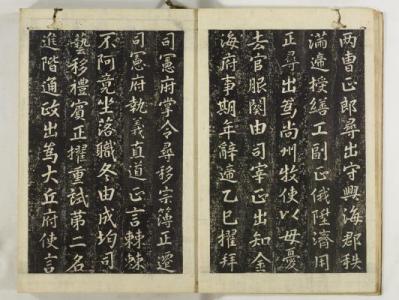 两曹正郎尋出守興海郡秩
滿遞授繕工副正俄陞濟用
正尋出爲尚州牧使以母憂
去官服闋由司宰正出知金
海府事期年辭遞乙巳擢拜
司憲府掌令尋移宗簿正遷
司憲府執義直道正言棘棘
不阿竟坐落職冬由成均司
藝移禮賓正擢重試第二名
進階通政出爲大丘府使言